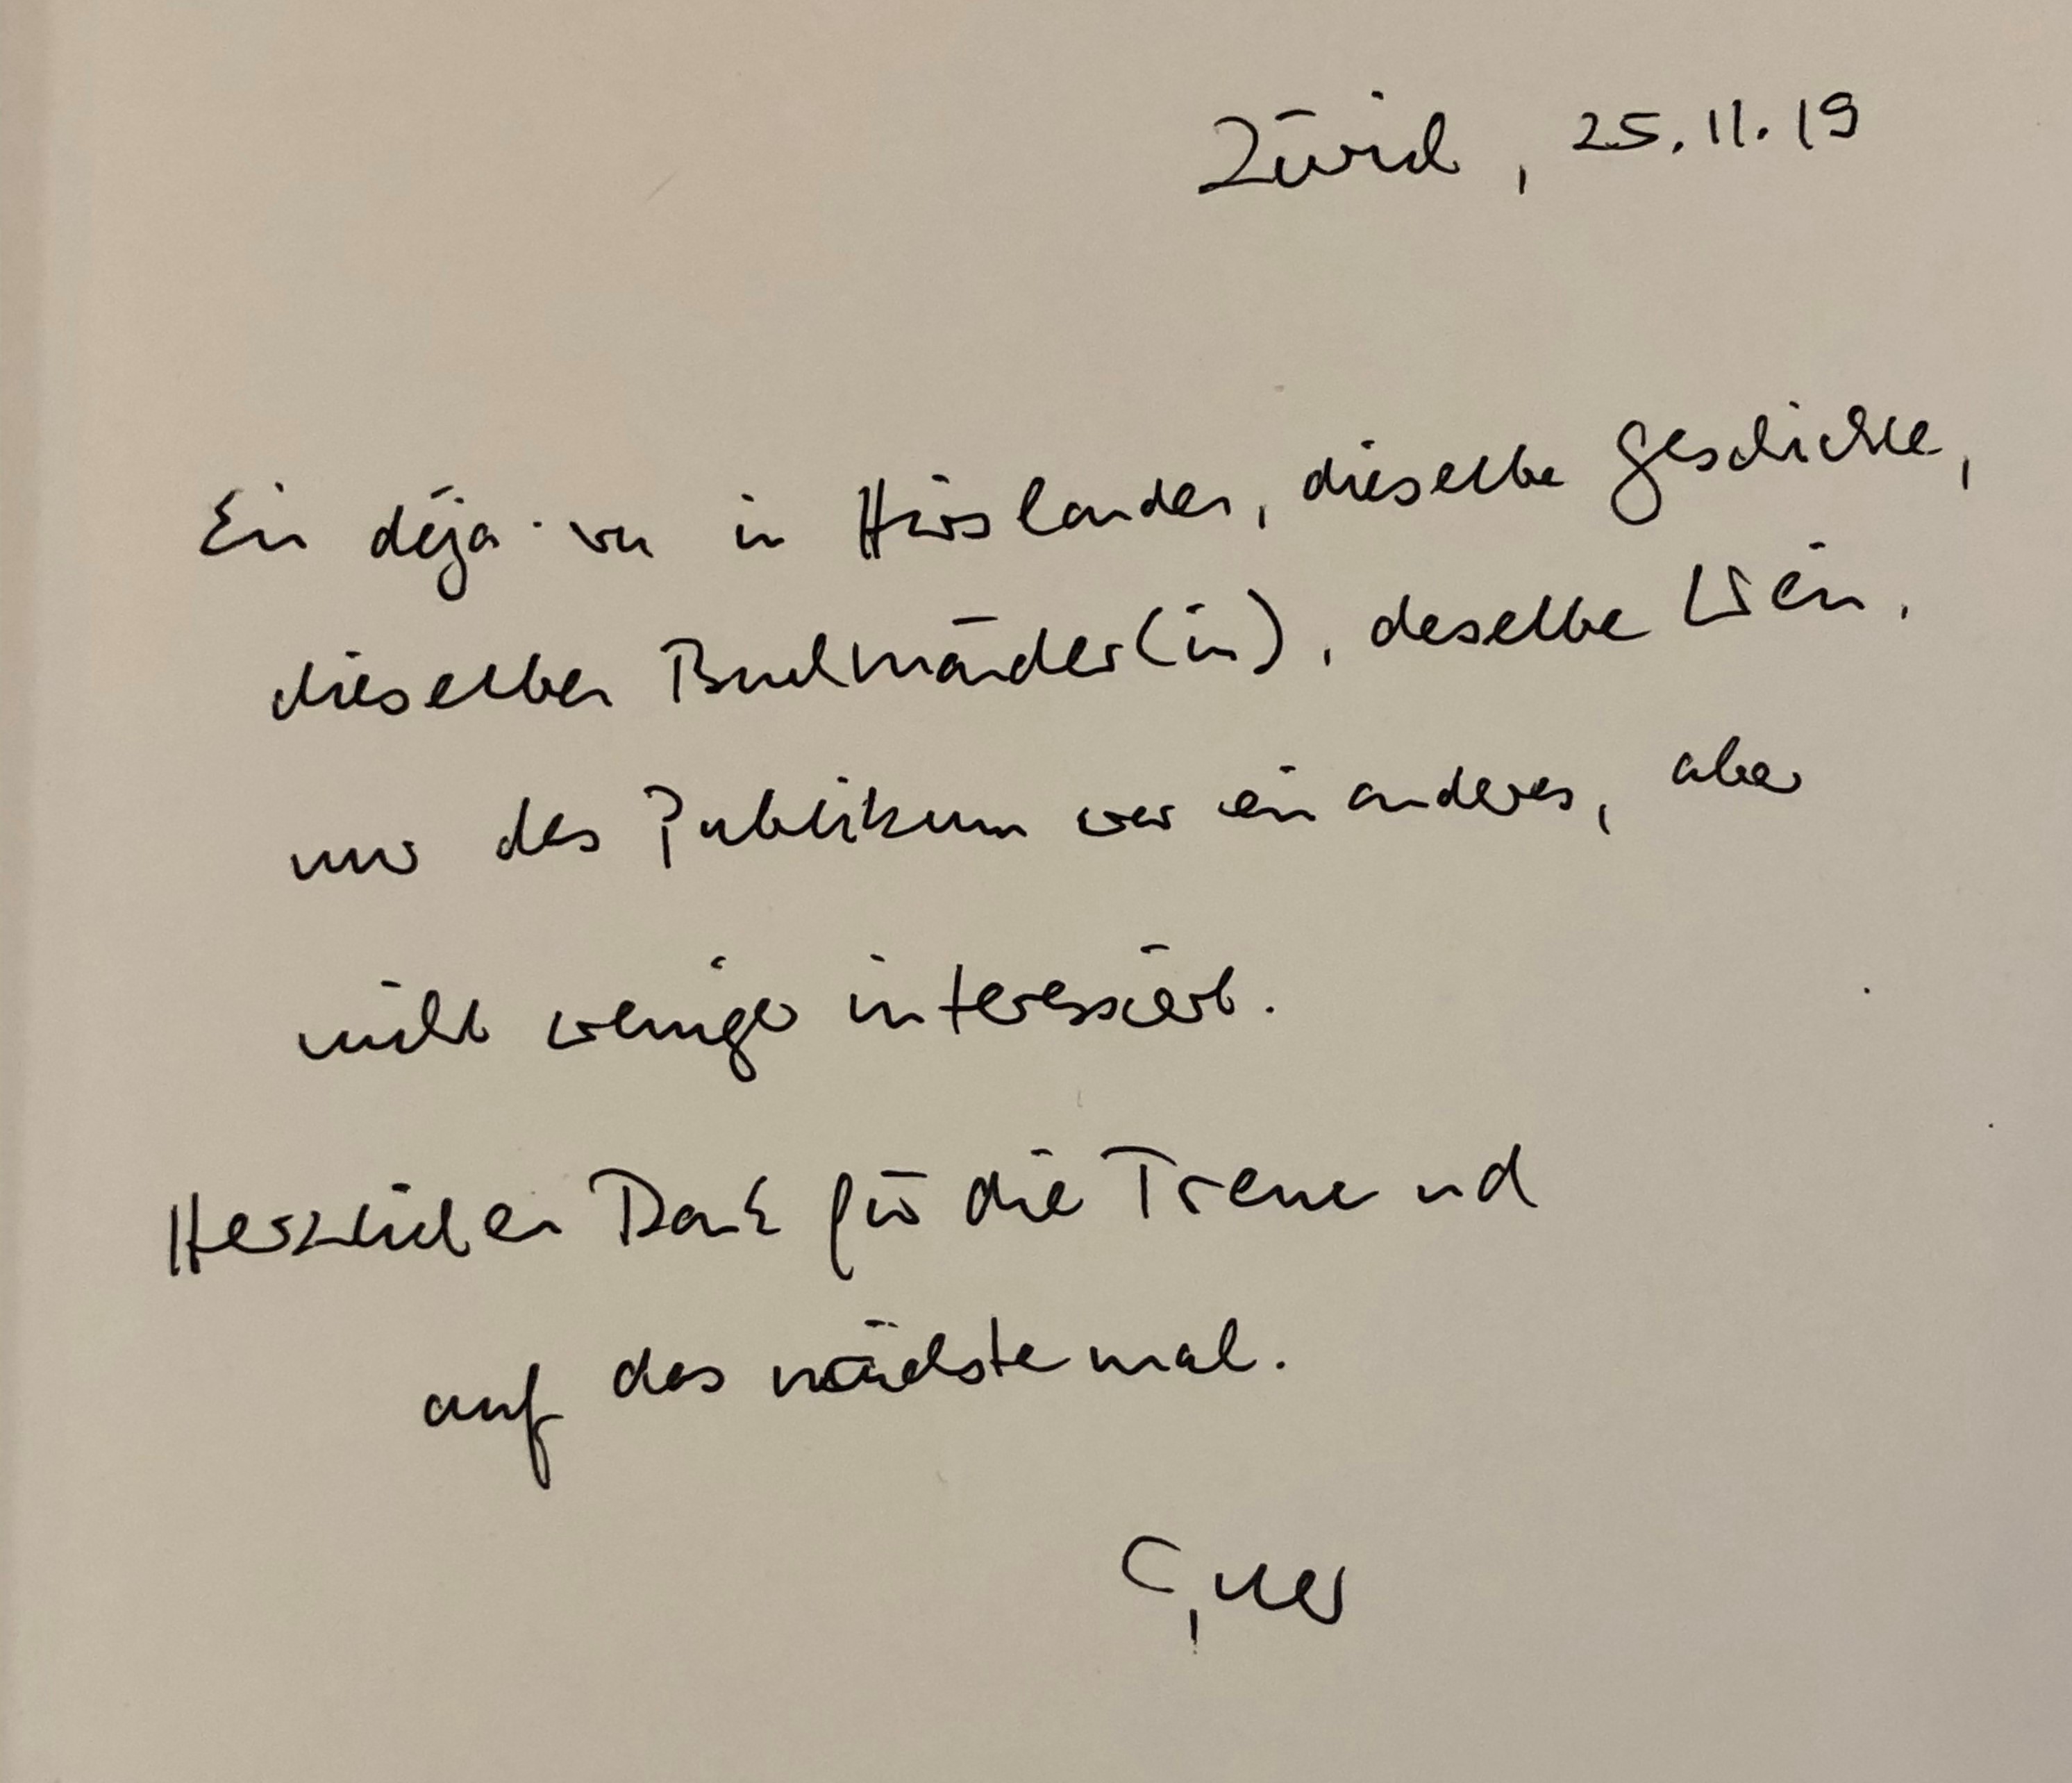 Zürich, 25.11.19
Ein déja-vu in Hirslanden, dieselbe Geschichte,
dieselben Buchhändler(in), derselbe Wein,
nur das Publikum war ein anderes, aber
nicht weniger interessiert.
Herzlichen Dank für die Treue und
auf das nächste mal.